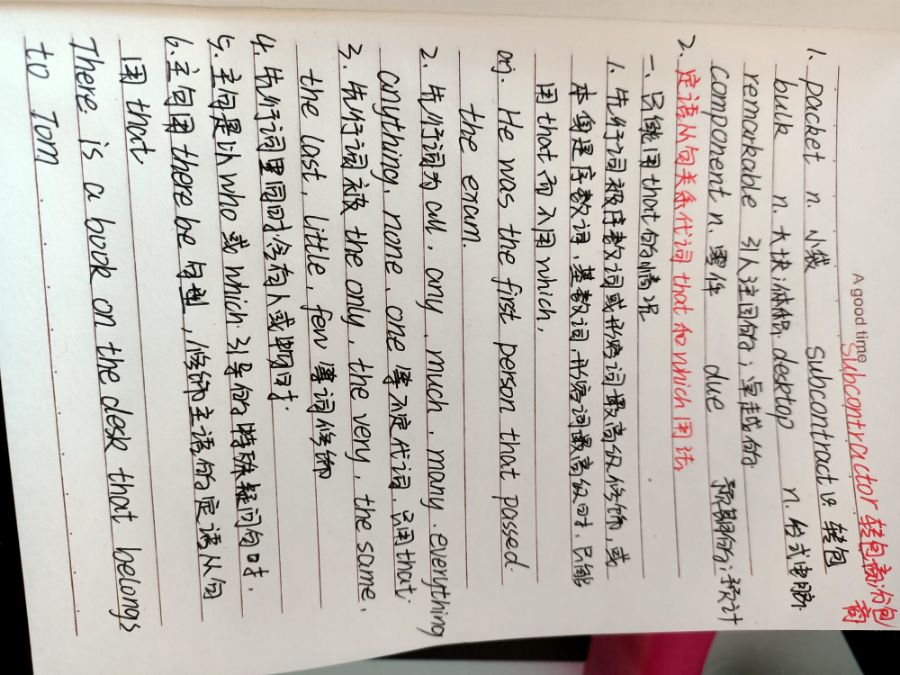 A good time
Subcontractor 转包商分包商
1. packet n. 小袋 Subcontract v. 转包
bulk n. 大块;体积. desktop n. 台式电脑.
remarkable 引人注目的;卓越的
component n. 零件 due 预期的;预计
2. 定语从句关系代词 that 和 which 用法
一. 只能用 that 的情况
1. 先行词被序数词或形容词最高级修饰,或
本身是序数词,基数词,形容词最高级时,只能
用 that 而不用 which,
eg. He was the first person that passed.
the exam.
2. 先行词为 all, any, much, many. everything
anything, none, one 等不定代词. 只用 that.
3. 先行词被 the only, the very, the same,
the last, little, few 等词修饰
4. 先行词里同时含有人或物时.
5. 主句是以 who 或 which 引导的特殊疑问句时.
6. 主句用 there be 句型, 修饰主语的定语从句
用 that
There is a book on the desk that belongs
to Tom